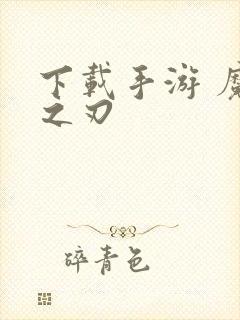 下载手游 魔
之刃
碎青色